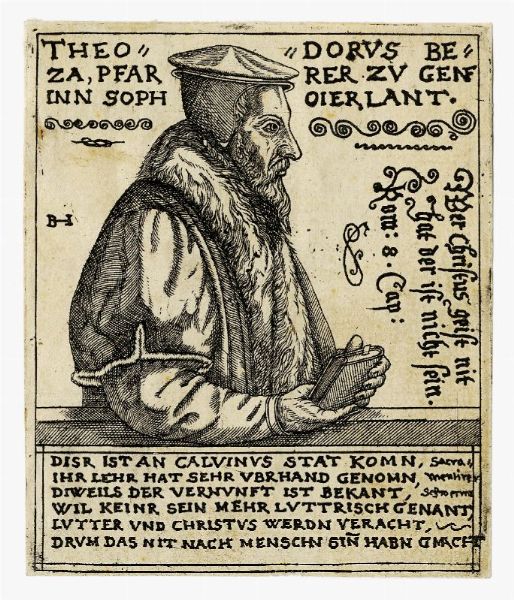 THEO〃 〃DORVS BE〃
ZA, PFAR RER ZV GENF
INN SOPH OIERLANT.
BH
Wer Christus geist nit
hat der ist nicht sein.
Rom: 8. Cap:
DISR IST AN CALVINUS STAT KOMN, Sacra〃
IHR LEHR HAT SEHR VBRHAND GENOMN, mentirer
DIWEILS DER VERNUNFT IST BEKANT, schwermer
WIL KEINR SEIN MEHR LVTTRISCH GENANT,
LVTTER VND CHRISTVS WERDN VERACHT,
DRVM DAS NIT NACH MENSCHN SIN HABN GMACHT